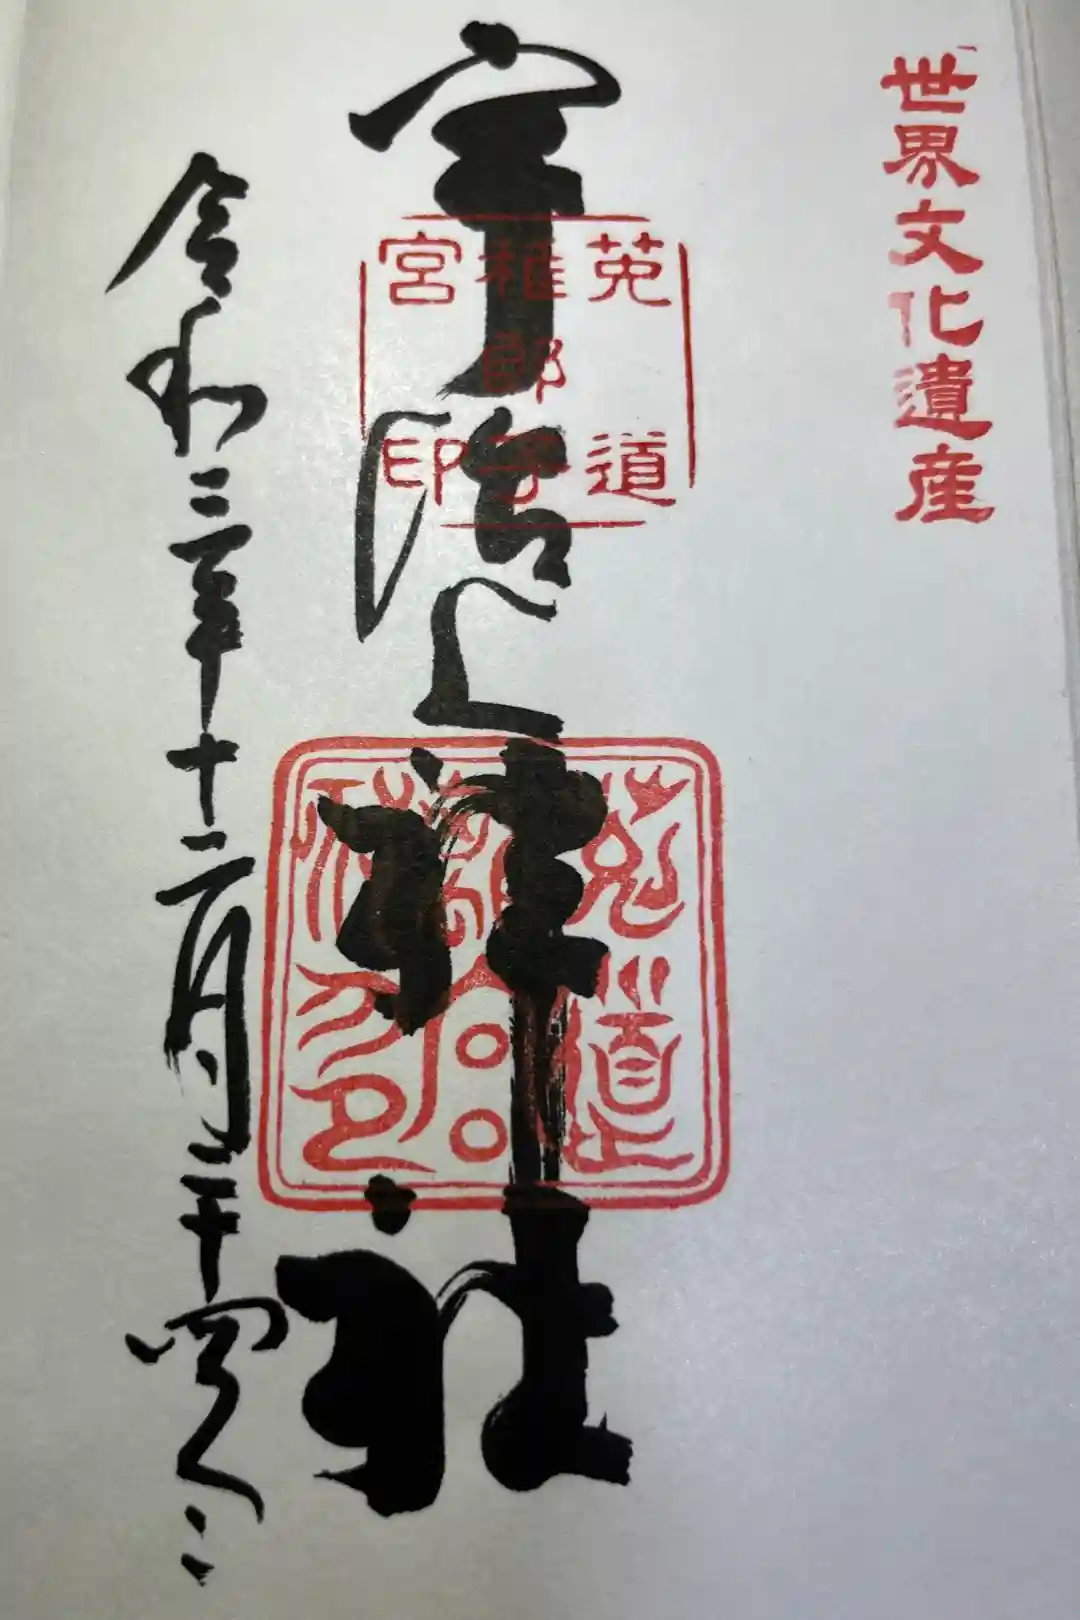 世界文化遺産
宇治上神社
菟道
稚郎子
宮印
菟道
離宮
令和三年十二月二十四日